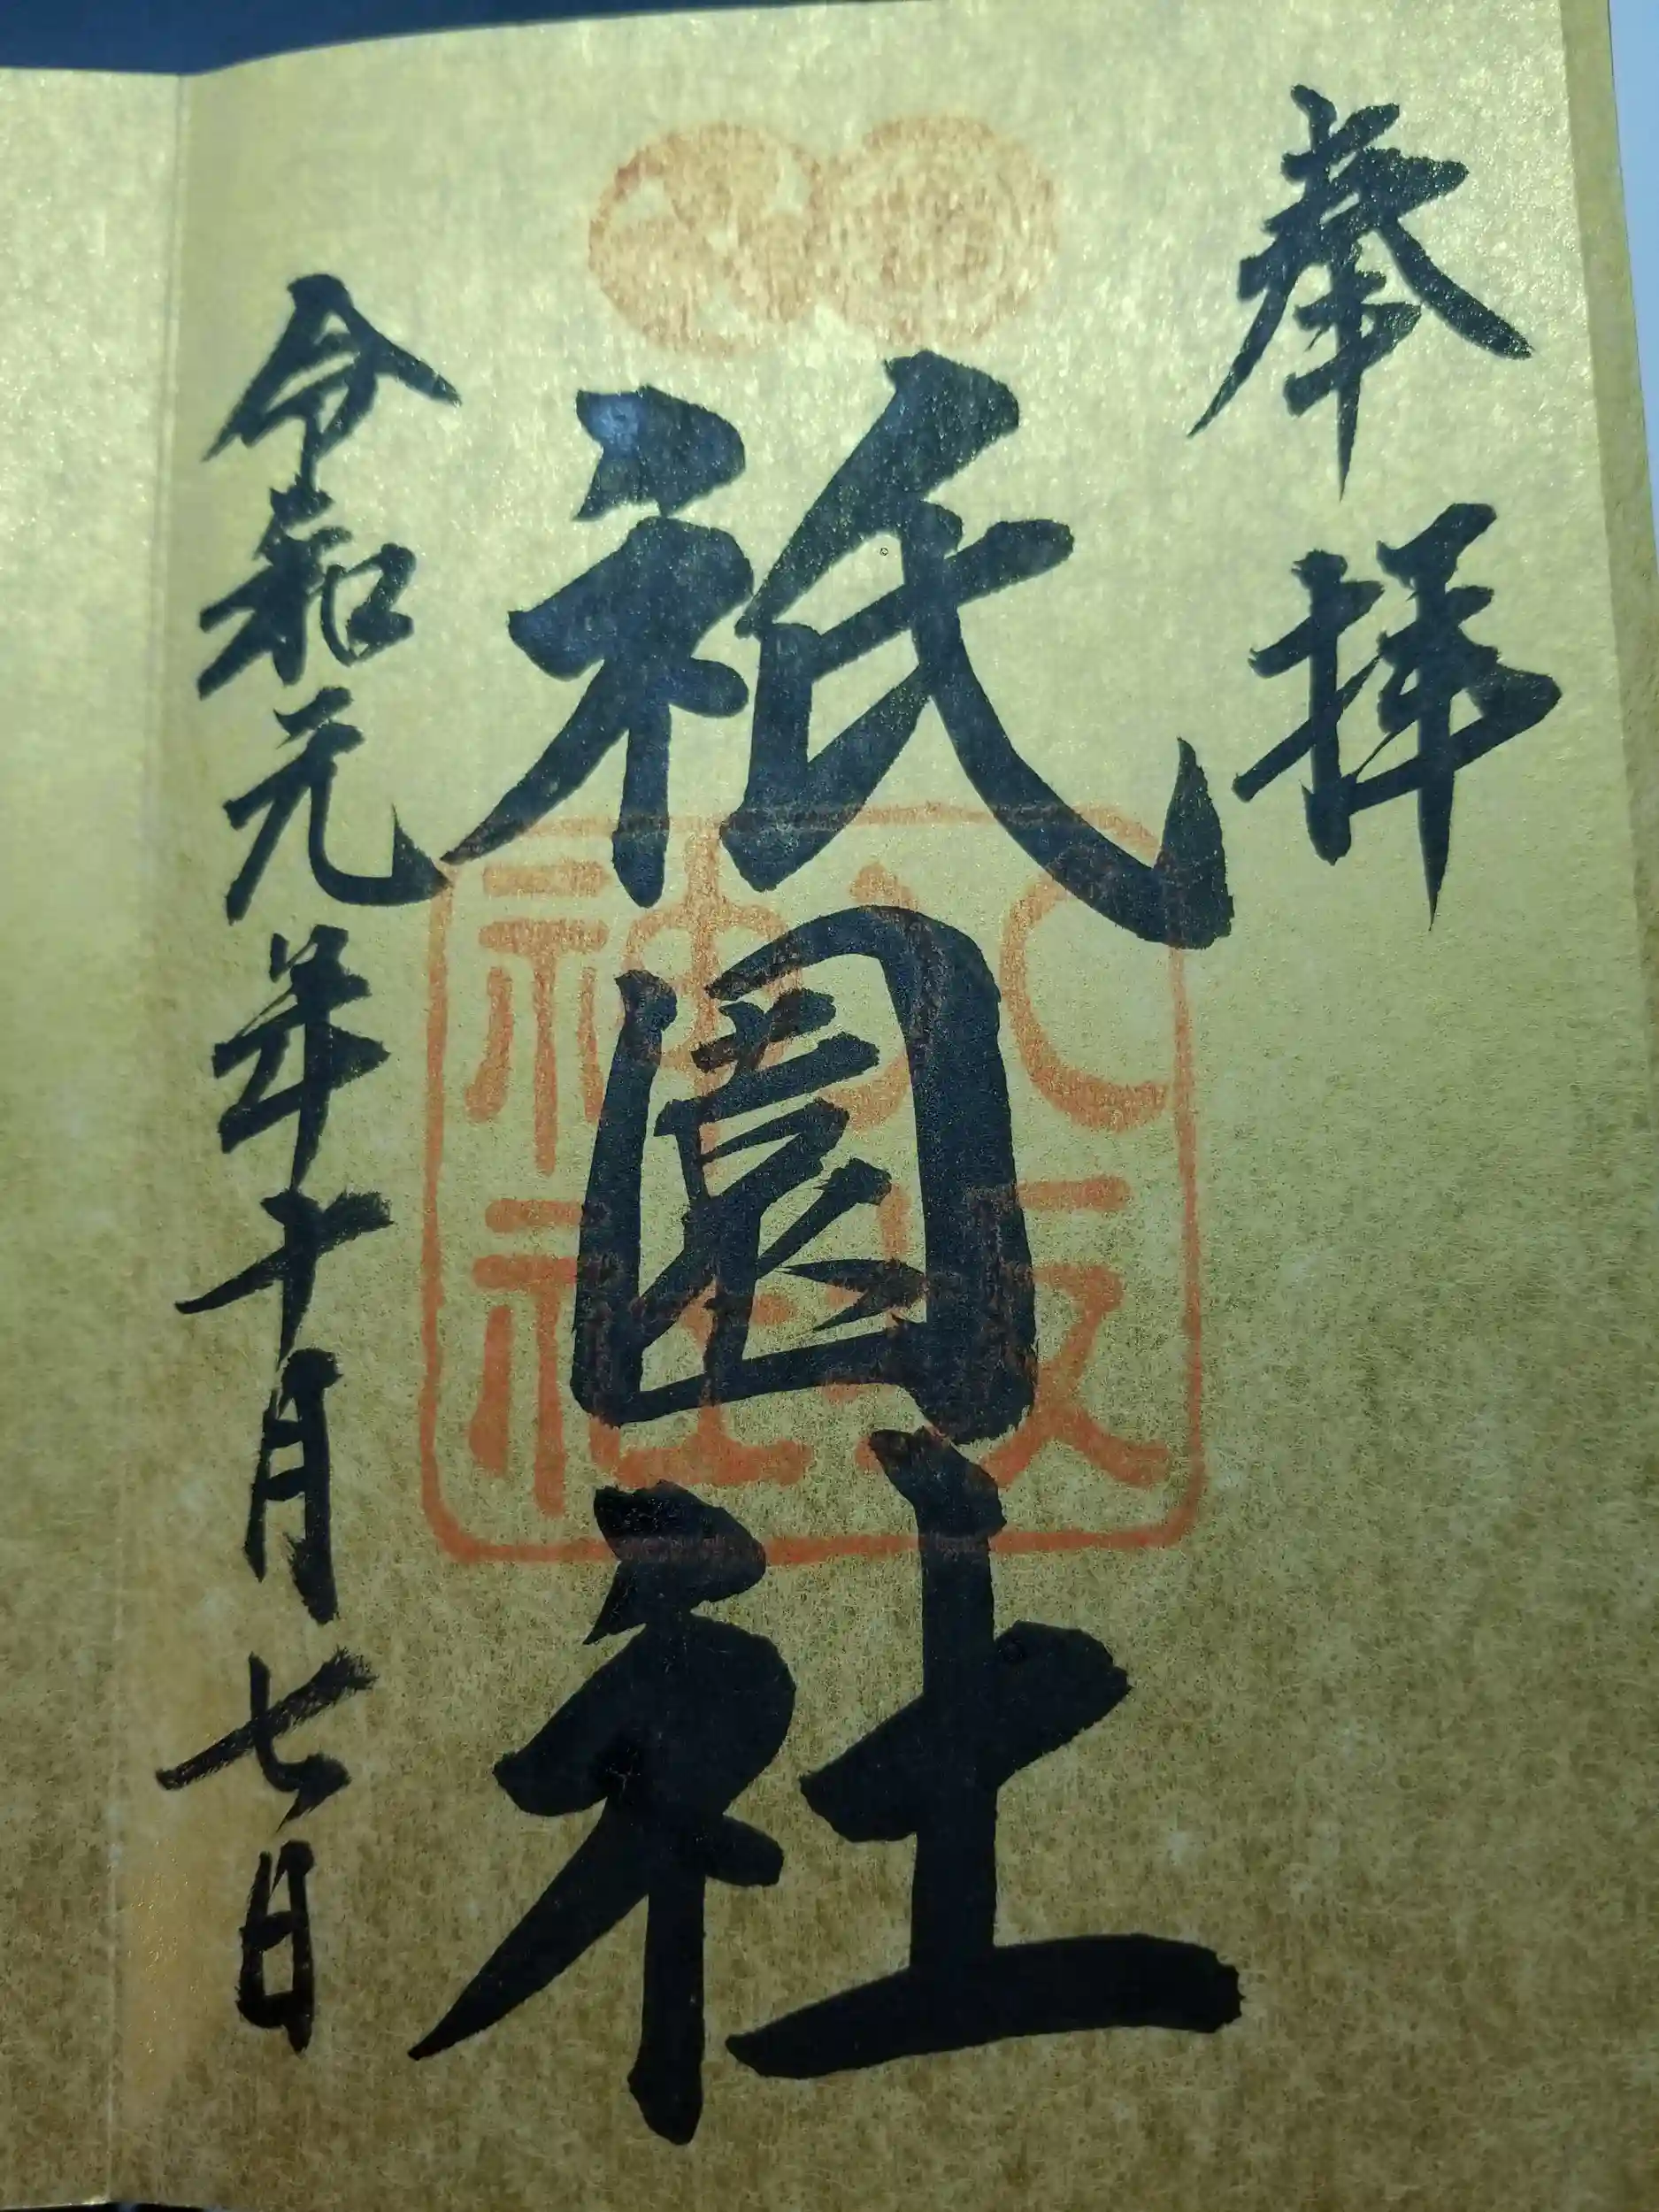 奉拝
祇園社
八坂
神社
令和元年十月七日